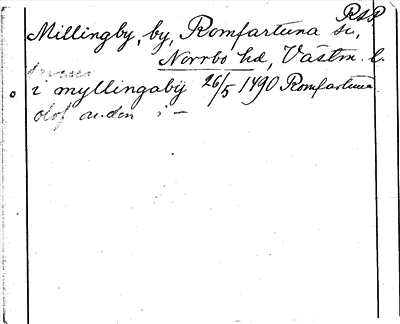 RAP
Millingby, by, Romfartuna sn,
Norrbo hd, Västm. l.
i myllingaby 26/5 1490 Romfartuna
olof